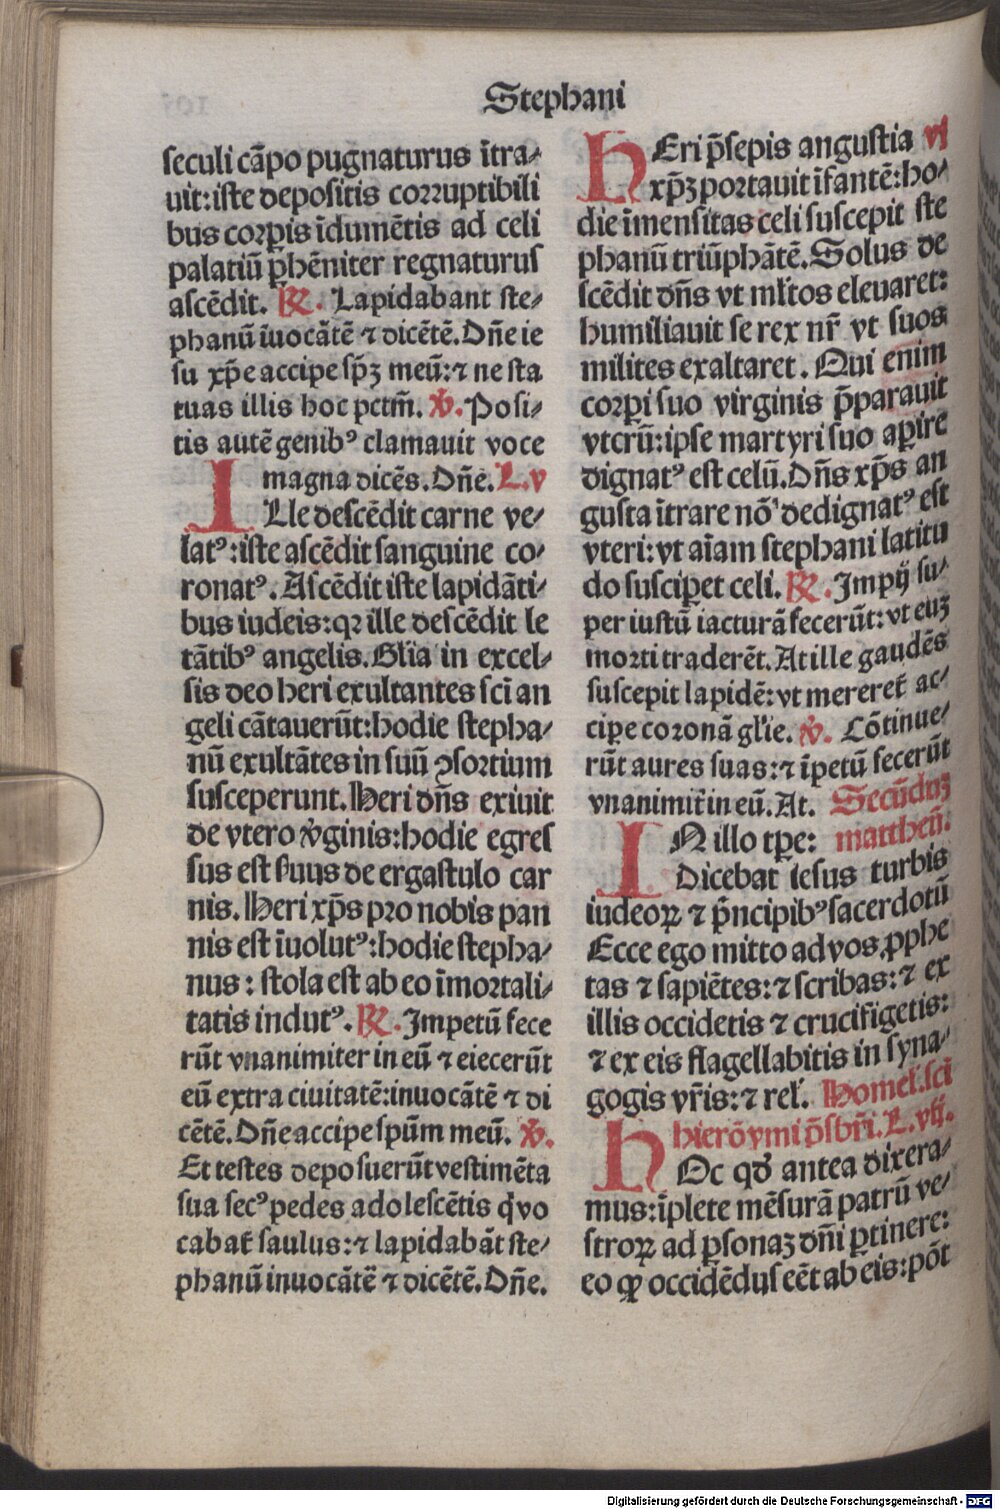 Stephani
seculi cāpo pugnaturus ītra-
uit:iste depositis corruptibili
bus corpis īdumētis ad celi
palatiū phēniter regnaturus
ascēdit. R. Lapidabant ste-
phanū īuocātē ⁊ dicētē. Dn̄e ie
su xp̄e accipe sp̄ꝫ meū:⁊ ne sta
tuas illis hoc pctm̄. V. Posi-
tis autē genibꝰ clamauit voce
magna dicēs. Dn̄e. L. v
ILle descēdit carne ve-
latꝰ:iste ascēdit sanguine co-
ronatꝰ. Ascēdit iste lapidāti-
bus iudeis:qꝛ ille descēdit le
tātibꝰ angelis. Gl̄ia in excel-
sis deo heri exultantes sc̄i an
geli cātauerūt:hodie stepha-
nū exultātes in suū ꝯsortium
susceperunt. Heri dn̄s exiuit
de vtero v̇ginis:hodie egres
sus est suus de ergastulo car
nis. Heri xp̄s pro nobis pan
nis est īuolutꝰ:hodie stepha-
nus: stola est ab eo īmortali-
tatis indutꝰ. R. Impetū fece
rūt vnanimiter in eū ⁊ eiecerūt
eū extra ciuitatē:inuocātē ⁊ di
cētē. Dn̄e accipe spūm meū. V.
Et testes deposuerūt vestimēta
sua secꝰ pedes adolescētis q̇ vo
cabat̄ saulus:⁊ lapidabāt ste-
phanū inuocātē ⁊ dicētē. Dn̄e.
HEri p̄sepis angustia vj
xp̄ꝫ portauit īfantē:ho-
die īmensitas celi suscepit ste
phanū triūphātē. Solus de
scēdit dn̄s vt ml̄tos eleuaret:
humiliauit se rex nr̄ vt suos
milites exaltaret. Qui enim
corpi suo virginis p̄parauit
vterū:ipse martyri suo apire
dignatꝰ est celū. Dn̄s xp̄s an
gusta ītrare nō dedignatꝰ est
vteri:vt aīam stephani latitu
do suscipet celi. R. Impij su-
per iustū iacturā fecerūt:vt euꝫ
morti traderēt. At ille gaudēs
suscepit lapidē:vt mereret̄ ac-
cipe coronā gl'ie. V. Cōtinue-
rūt aures suas:⁊ īpetū fecerūt
vnanimit̄ in eū. At. Secūduꝫ
IN illo tpe: mattheū.
Dicebat iesus turbis
iudeoꝝ ⁊ p̄ncipibꝰ sacerdotū
Ecce ego mitto ad vos ꝓphe
tas ⁊ sapiētes:⁊ scribas:⁊ ex
illis occidetis ⁊ crucifigetis:
⁊ ex eis flagellabitis in syna-
gogis vr̄is:⁊ rel'. Homel'. sc̄i
hierōymi p̄sbr̄i. L. vij.
HOc qd̄ antea dixera-
mus:īplete mēsurā patrū ve-
stroꝝ ad psonaꝫ dn̄i ꝑtinere:
eo ꝙ occidēdus eēt ab eis:pōt
Digitalisierung gefördert durch die Deutsche Forschungsgemeinschaft - DFG